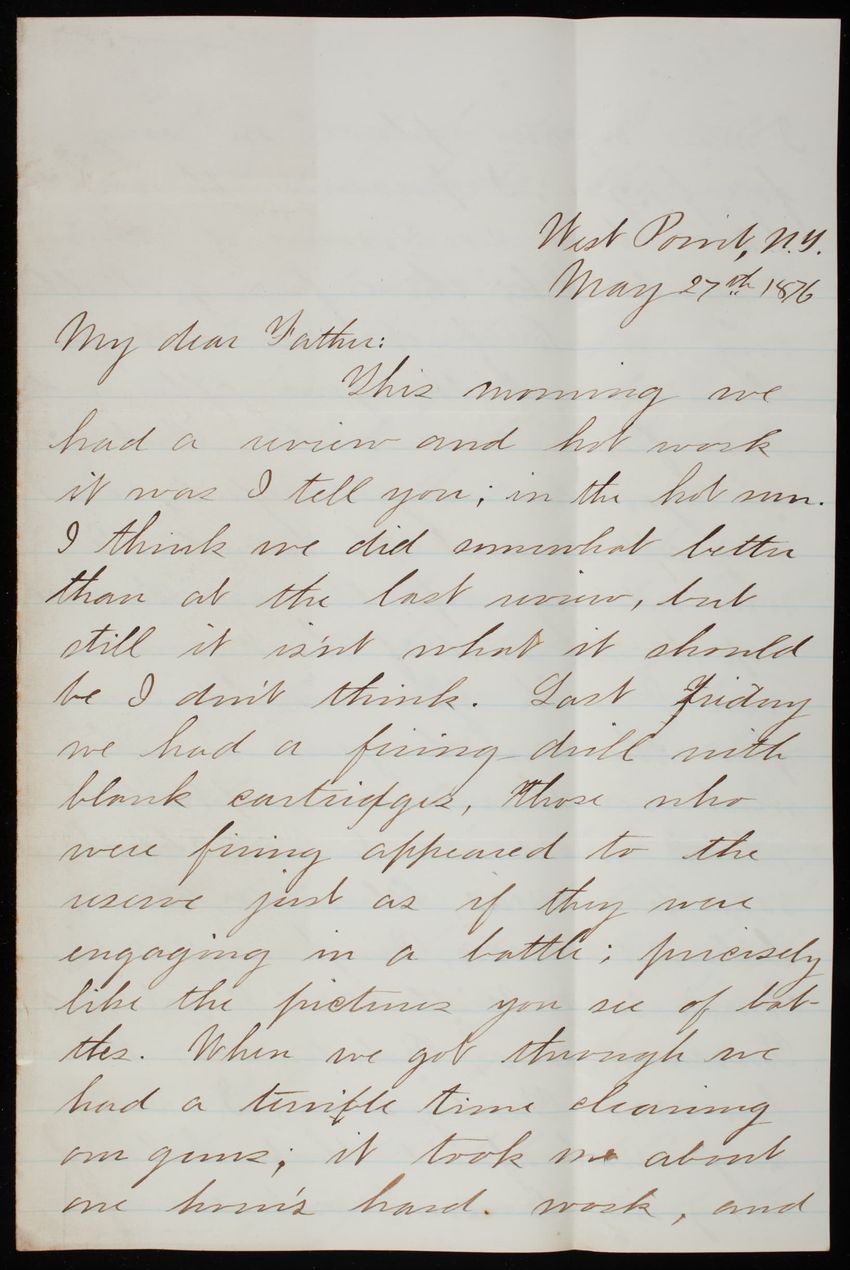 West Point, N.Y.
May 27th 1876
My dear Father:
This morning we
had a review and hot work
it was I tell you; in the hot sun.
I think we did somewhat better
than at the last review, but
still it isn't what it should
be I don't think. Last Friday
we had a firing drill with
blank cartridges, those who
were firing appeared to the
reserve just as if they were
engaging in a battle; precisely
like the pictures you see of bat-
tles. When we got through we
had a terrible time cleaning
our guns; it took me about
one hour's hard work, and